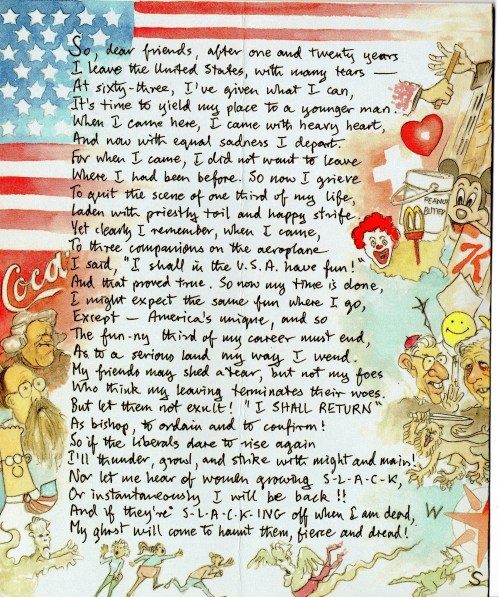 So, dear friends, after one and twenty years
I leave the United States, with many tears —
At sixty-three, I've given what I can,
It's time to yield my place to a younger man.
When I came here, I came with heavy heart,
And now with equal sadness I depart.
For when I came, I did not want to leave
Where I had been before. So now I grieve
To quit the scene of one third of my life,
Laden with priestly toil and happy strife.
Yet clearly I remember, when I came,
To three companions on the aeroplane
I said, "I shall in the U.S.A. have fun!"
And that proved true. So now my time is done,
I might expect the same fun where I go,
Except — America's unique, and so
The fun-ny third of my career must end,
As to a serious land my way I wend.
My friends may shed a tear, but not my foes
Who think my leaving terminates their woes.
But let them not exult! "I SHALL RETURN"
As bishop, to ordain and to confirm!
So if the liberals dare to rise again
I'll thunder, growl, and strike with might and main!
Nor let me hear of women growing S-L-A-C-K,
Or instantaneously I will be back!!
And if they're S-L-A-C-K-ING off when I am dead,
My ghost will come to haunt them, fierce and dread!
PEANUT
BUTTER
Coca
K
W
S